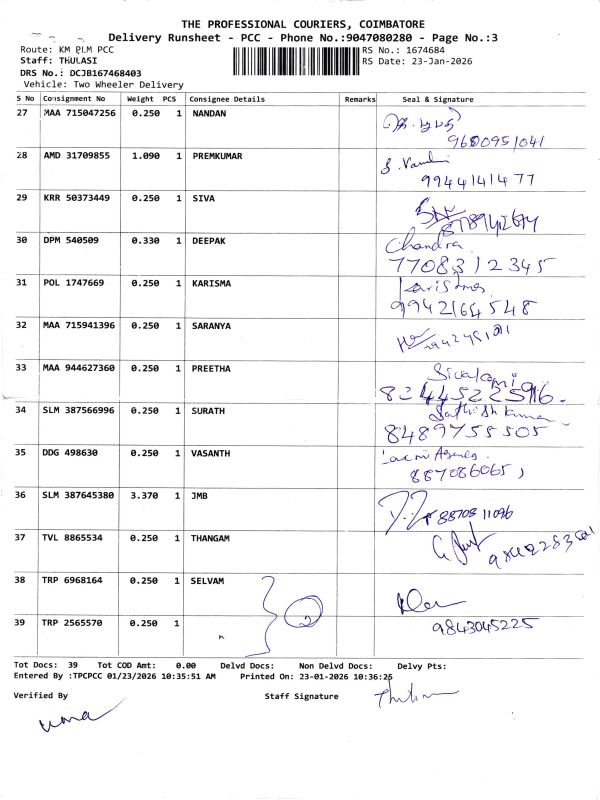 THE PROFESSIONAL COURIERS, COIMBATORE
Delivery Runsheet - PCC - Phone No.:9047080280 - Page No.:3
Route: KM PLM PCC
RS No.: 1674684
Staff: THULASI
RS Date: 23-Jan-2026
DRS No.: DCJB167468403
Vehicle: Two Wheeler Delivery
S No Consignment No Weight PCS Consignee Details Remarks Seal & Signature
27 MAA 715047256 0.250 1 NANDAN
9600951041
28 AMD 31709855 1.090 1 PREMKUMAR
9944141477
29 KRR 50373449 0.250 1 SIVA
30 DPM 540509 0.330 1 DEEPAK Chandra
7708312345
31 POL 1747669 0.250 1 KARISMA Karisma
9942164548
32 MAA 715941396 0.250 1 SARANYA
33 MAA 944627360 0.250 1 PREETHA
34 SLM 387566996 0.250 1 SURATH Sathish Kumar
8489755505
35 DDG 498630 0.250 1 VASANTH
36 SLM 387645380 3.370 1 JMB
8870811096
37 TVL 8865534 0.250 1 THANGAM
38 TRP 6968164 0.250 1 SELVAM
2
39 TRP 2565570 0.250 1
9843045225
Tot Docs: 39 Tot COD Amt: 0.00 Delvd Docs: Non Delvd Docs: Delvy Pts:
Entered By :TPCPCC 01/23/2026 10:35:51 AM Printed On: 23-01-2026 10:36:25
Verified By Staff Signature
uma